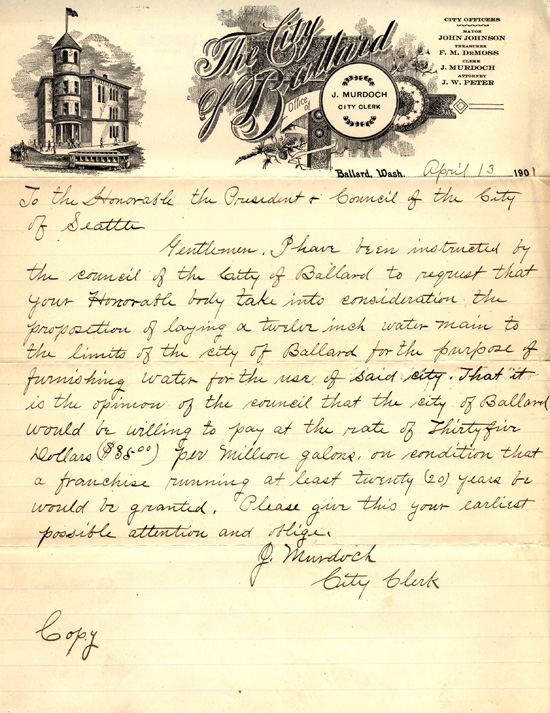 The City
of Ballard
Office of
J. MURDOCH
CITY CLERK
CITY OFFICERS
MAYOR
JOHN JOHNSON
TREASURER
F. M. DEMOSS
CLERK
J. MURDOCH
ATTORNEY
J. W. PETER
Ballard, Wash. April 13 1901
To the Honorable the President & Council of the City
of Seattle
Gentlemen. I have been instructed by
the council of the City of Ballard to request that
your Honorable body take into consideration the
proposition of laying a twelve inch water main to
the limits of the city of Ballard for the purpose of
furnishing water for the use of said city. That it
is the opinion of the council that the city of Ballard
would be willing to pay at the rate of Thirtyfive
Dollars ($35.00) per Million galons, on condition that
a franchise running at least twenty (20) years be
would be granted. Please give this your earliest
possible attention and oblige.
J. Murdoch
City Clerk
Copy